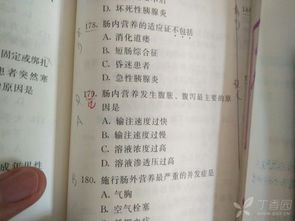 D. 坏死性胰腺炎
178. 肠内营养的适应证不包括
A. 消化道瘘
B. 短肠综合征
C. 昏迷患者
D. 急性胰腺炎
179. 肠内营养发生腹胀、腹泻最主要的原
因是
A. 输注速度过快
B. 输注速度过慢
C. 溶液浓度过高
D. 溶液渗透压过高
180. 施行肠外营养最严重的并发症是
A. 气胸
B. 空气栓塞
固定或绑扎
患者突然寒
原因是
成年男性
丁香园